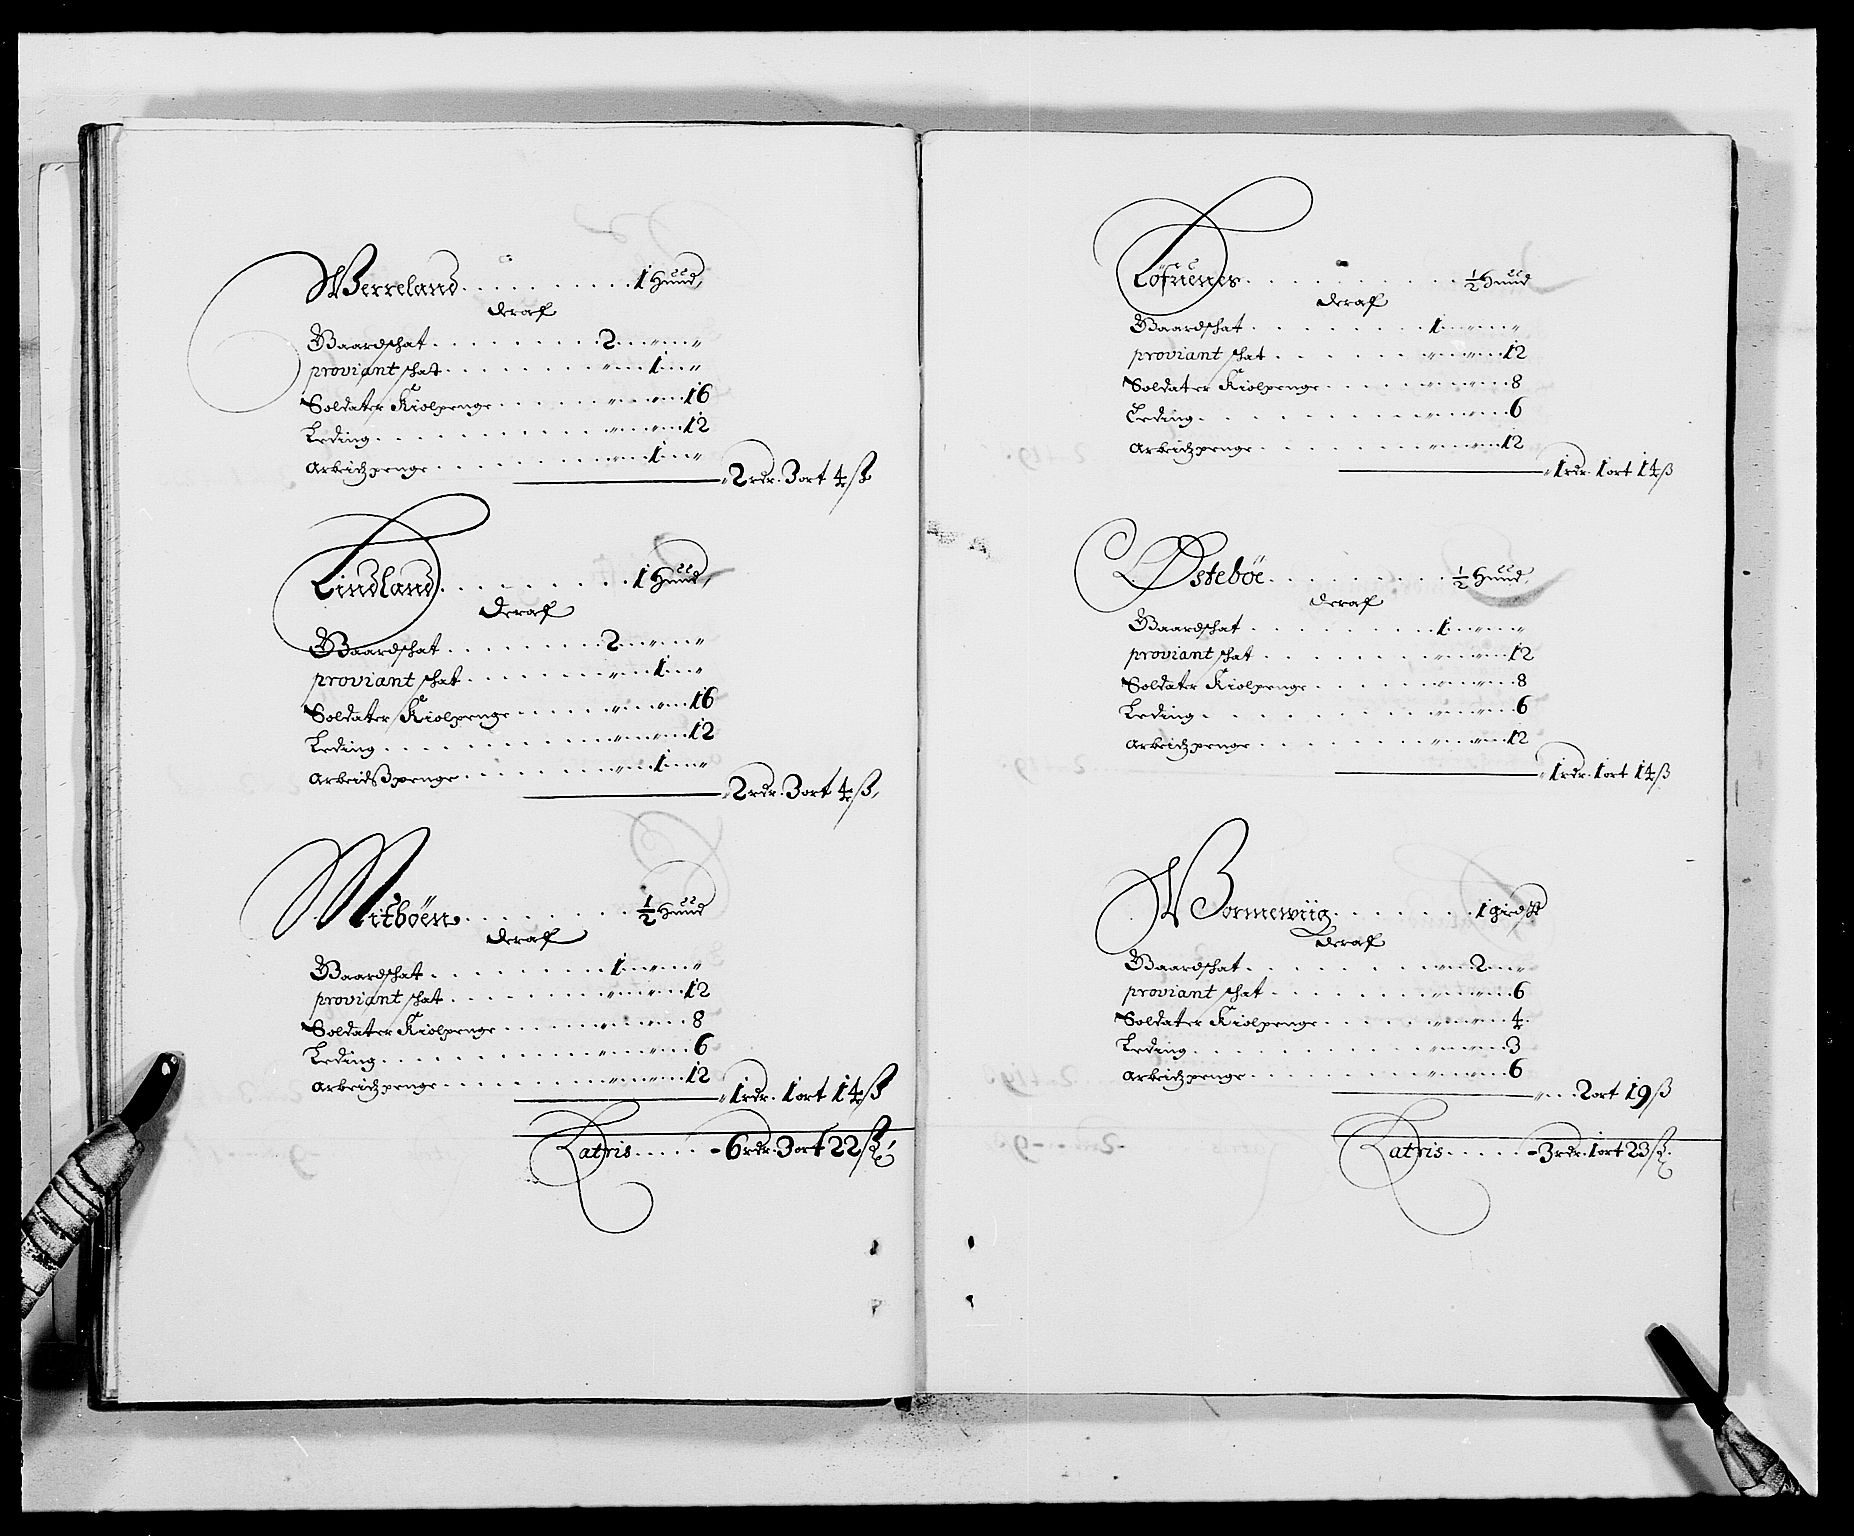 Werreland . . . . . . . . . . 1 Huud,
deraf
Gaardschat . . . . . . . . . 2 „ „
proviant schat . . . . . . . . „ 1 „
Soldater Kiolpenge . . . . . . „ „ 16
Leding . . . . . . . . . . „ „ 12
Arbeidzpenge . . . . . . . . „ 1 „
2 rdr. 3 ort 4 ß
Lindland . . . . . . . . . 1 Huud,
deraf
Gaardschat . . . . . . . . 2 „ „
proviant schat . . . . . . . „ 1 „
Soldater Kiolpenge . . . . . „ „ 16
Leding . . . . . . . . . . „ „ 12
Arbeidßpenge . . . . . . . „ 1 „
2 rdr. 3 ort 4 ß,
Mitböen . . . . . . . . ½ Huud
deraf
Gaardschat . . . . . . . . 1 „ „
proviant schat . . . . . . . „ „ 12
Soldater Kiolpenge . . . . . „ „ 8
Leding . . . . . . . . . . „ „ 6
Arbeidzpenge . . . . . . . „ „ 12
1 rdr. 1 ort 14 ß
Latris . . . . . - 6 rdr. 3 ort 22 ß
Löfnenes . . . . . . . . . . ½ Huud
deraf
Gaardschat . . . . . . . . 1 „ „
proviant schat . . . . . . . „ „ 12
Soldater Kiolpenge . . . . . „ „ 8
Leding . . . . . . . . . . „ „ 6
Arbeidzpenge . . . . . . . „ „ 12
1 rdr. 1 ort 14 ß
Østeböe . . . . . . . . . ½ Huud,
deraf
Gaardschat . . . . . . . . 1 „ „
proviant schat . . . . . . . „ „ 12
Soldater Kiolpenge . . . . . „ „ 8
Leding . . . . . . . . . . „ „ 6
Arbeidzpenge . . . . . . . „ „ 12
1 rdr. 1 ort 14 ß
Wormewiig . . . . . . . 1 
deraf
Gaardschat . . . . . . . . „ 2 „
proviant schat . . . . . . . „ „ 6
Soldater Kiolpenge . . . . . „ „ 4
Leding . . . . . . . . . . „ „ 3
Arbeidzpenge . . . . . . . „ „ 6
„ 2 ort 19 ß
Latris . . . . . - 3 rdr. 1 ort 23 ß